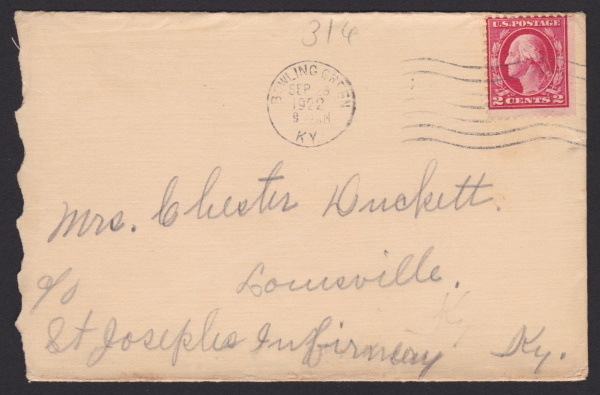 314
U.S. POSTAGE
2 CENTS 2
BOWLING GREEN
SEP
1922
9
KY.
Mrs. Chester Duckett.
Louisville.
c/o
Ky
St Josephs Infirmary Ky.